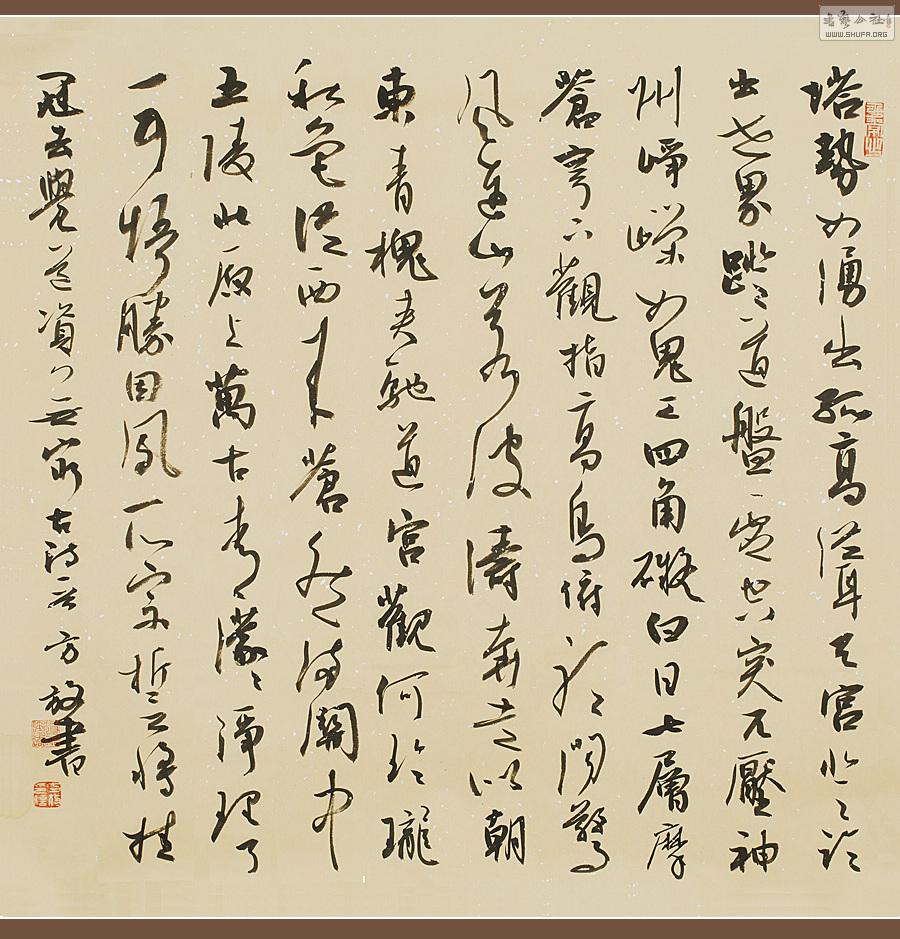 塔勢如湧出孤高聳天宮登臨
出世界蹬道盤虛空突兀壓神
州崢嶸如鬼工四角礙白日七層摩
蒼穹下觀指高鳥俯聽聞驚
風連山若波濤奔走似朝
東青槐夾馳道宮觀何玲瓏
秋色從西來蒼然滿關中
五陵北原上萬古青濛濛淨理了
可悟勝因夙所宗誓將掛
冠去覺道資無窮古詩方放書
書藝公社
WWW.SHUFA.ORG